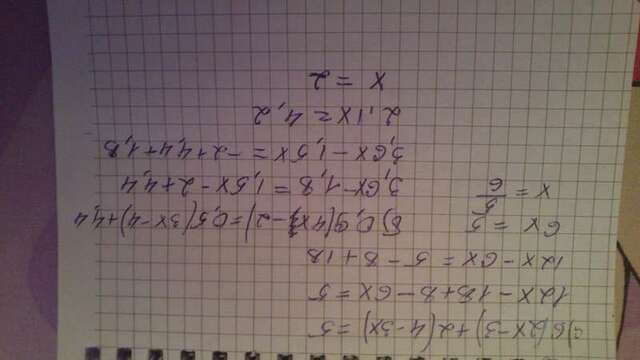 a) 6(2x-3)+2(4-3x)=5
12x-18+8-6x=5
12x-6x=5-8+18
6x=5
x=5/6
б) 0,9(4x-2)=0,5(3x-4)+4,4
3,6x-1,8=1,5x-2+4,4
3,6x-1,5x=-2+4,4+1,8
2,1x=4,2
x=2